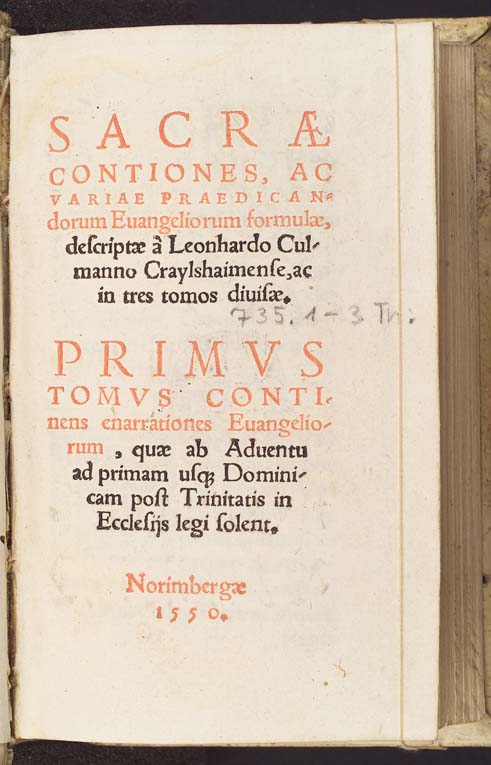 SACRÆ
CONTIONES, AC
VARIAE PRAEDICAN⸗
dorum Euangeliorum formulæ,
deſcriptæ à Leonhardo Cul⸗
manno Craylshaimenſe, ac
in tres tomos diuiſæ.
735. 1-3 Th:
PRIMVS
TOMVS CONTI⸗
nens enarrationes Euangelio⸗
rum, quæ ab Aduentu
ad primam uſq; Domini⸗
cam poſt Trinitatis in
Eccleſijs legi ſolent.
Norimbergæ
1550.